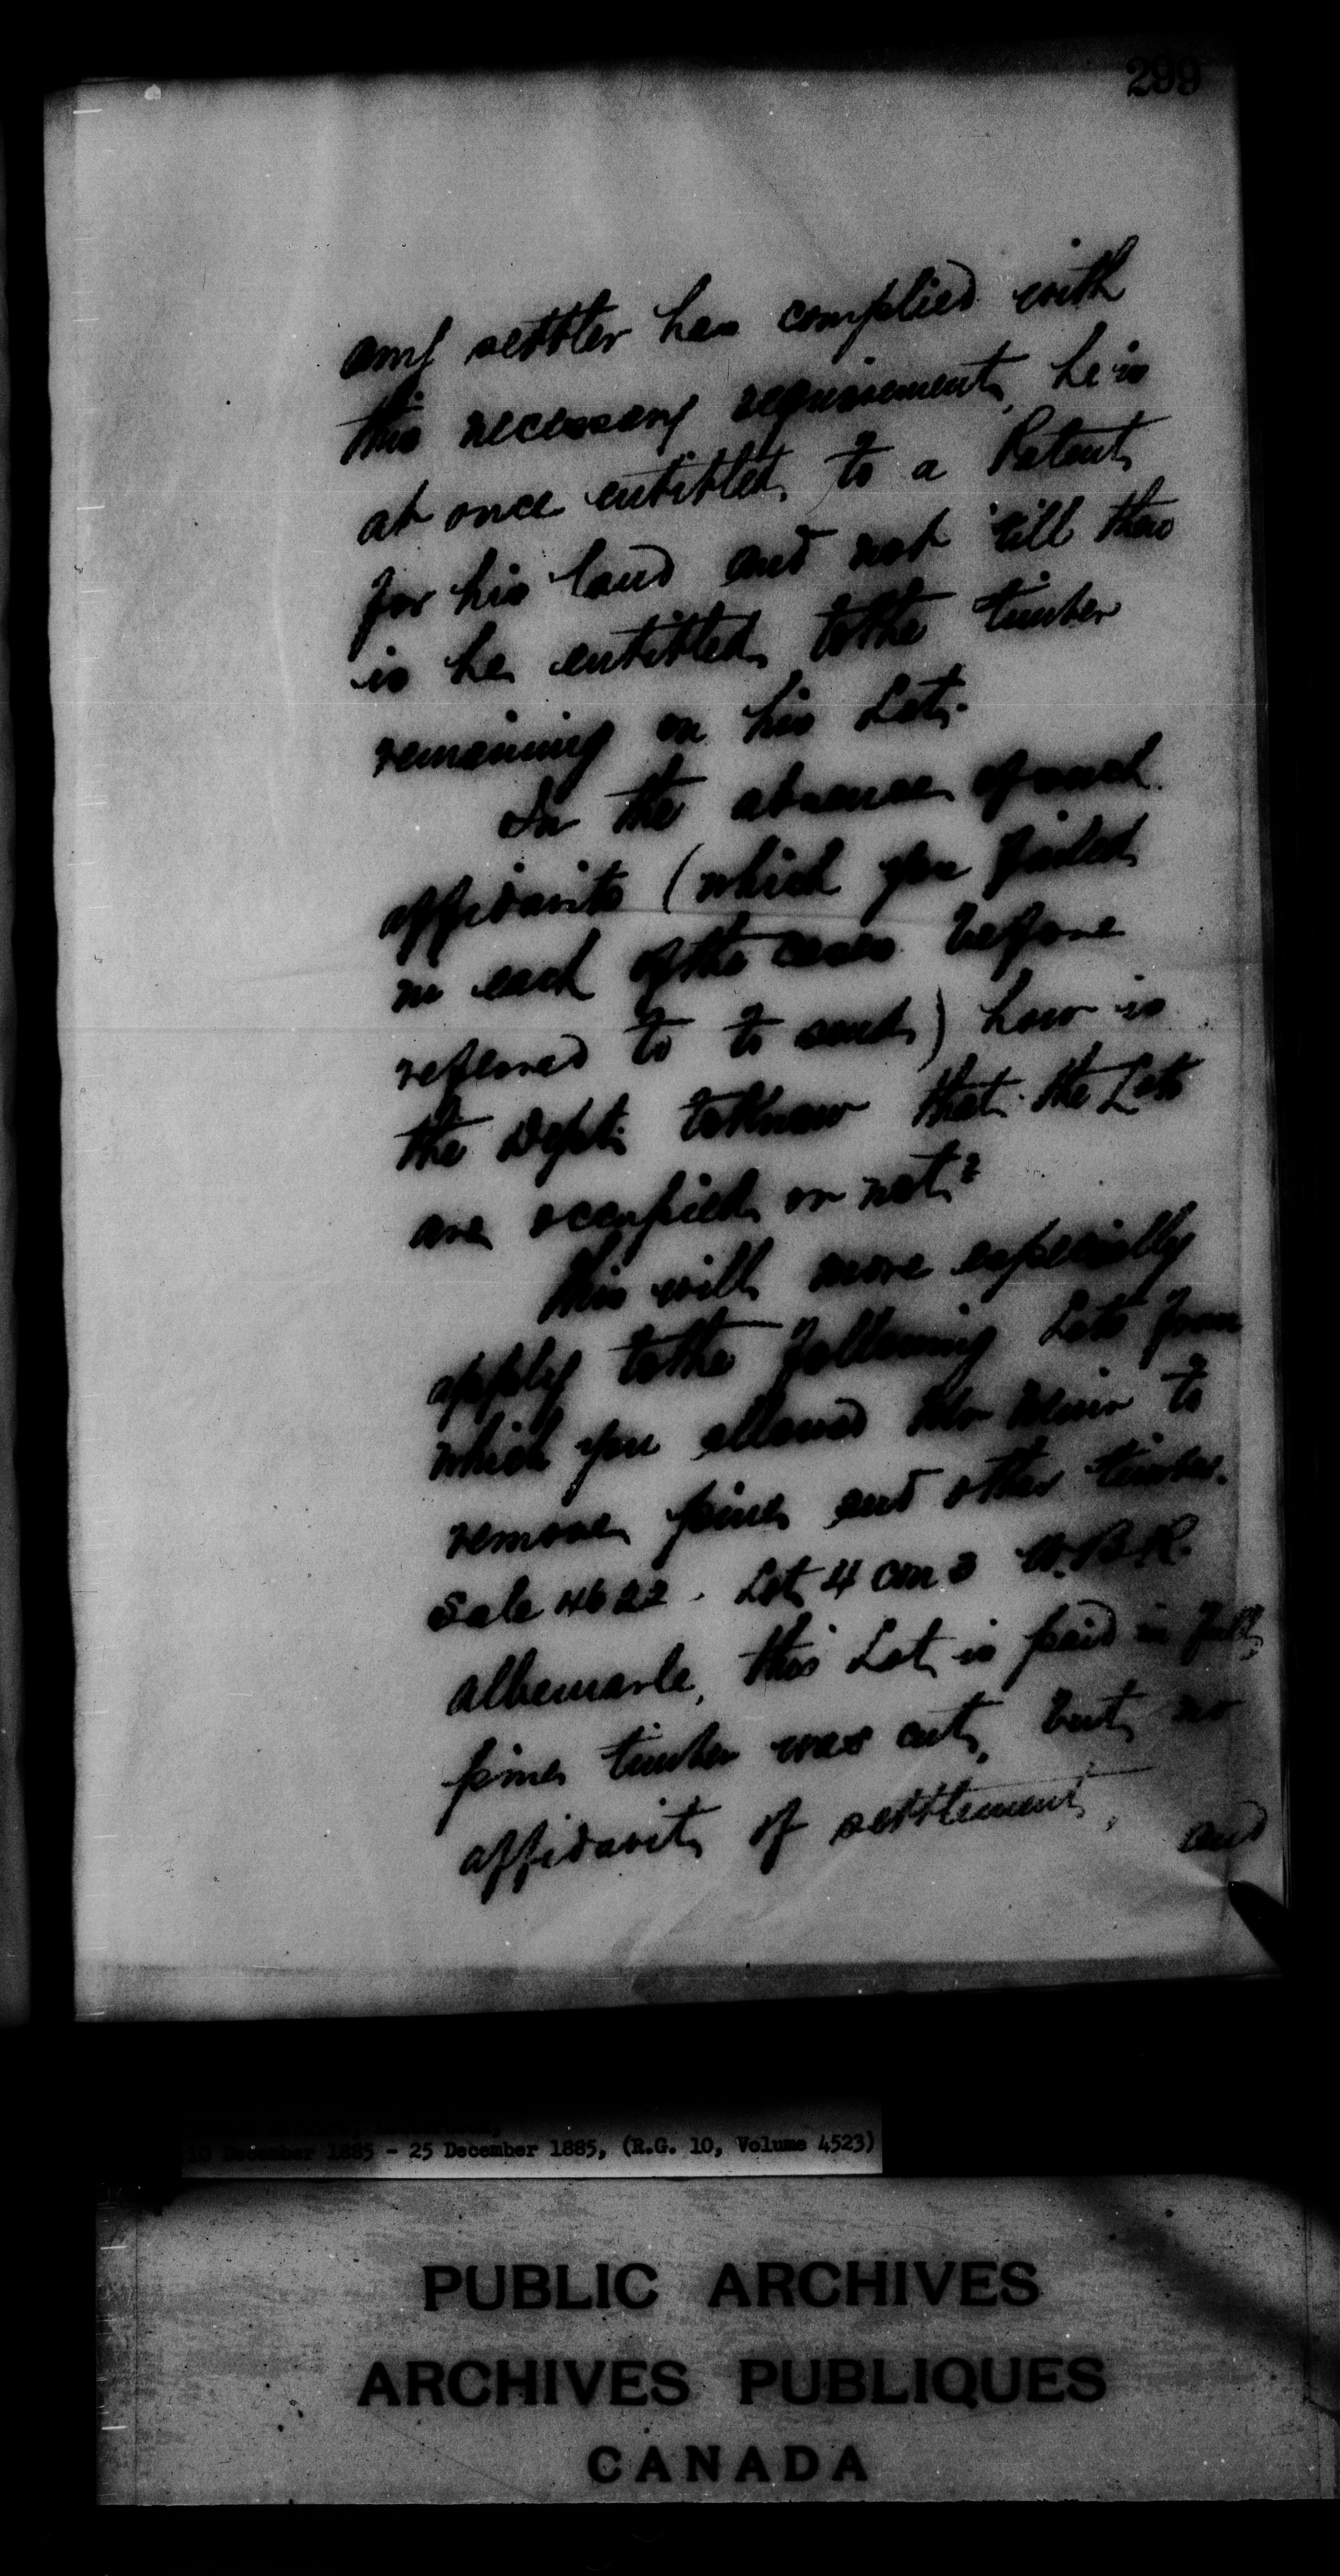 299
any settler has complied with
this necessary requirement, he is
at once entitled, to a Patent
for his land and not 'till then
is he entitled to the timber
remaining on his Lot.
In the absence of such
affidavits (which you failed
in each of the cases before
referred to to send) how is
the Dept. to know that the Lots
are occupied or not?
This will more especially
apply to the following Lots from
which you allowed Mr to
remove pine and other timber.
Sale 4622. Lot 4 Con 3 W.B.R.
Albemarle, this Lot is paid in full,
pine timber was cut, but no
affidavit of settlement,
and
December 1885 - 25 December 1885, (R.G. 10, Volume 4523)
PUBLIC ARCHIVES
ARCHIVES PUBLIQUES
CANADA